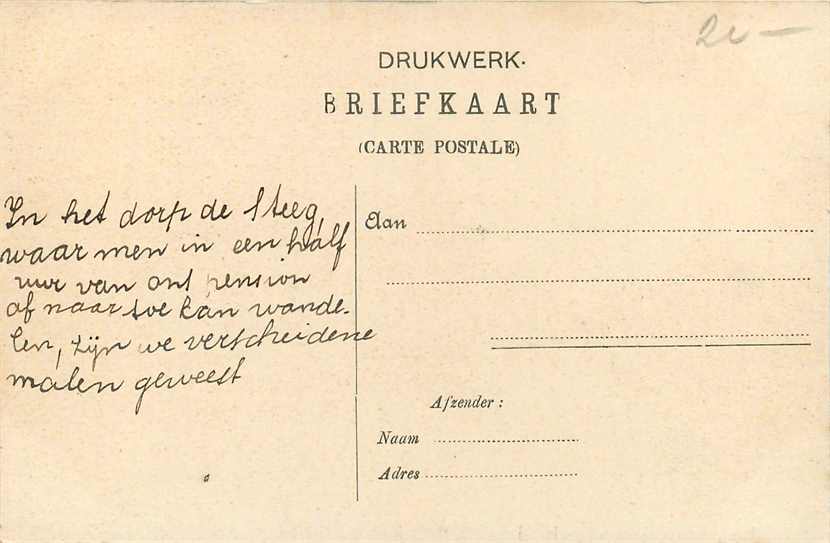 2c —
DRUKWERK.
BRIEFKAART
(CARTE POSTALE)
In het dorp de Steeg,
waar men in een half
uur van ons pension
af naar toe kan wande-
len, zijn we verscheidene
malen geweest
Aan
Afzender :
Naam
Adres